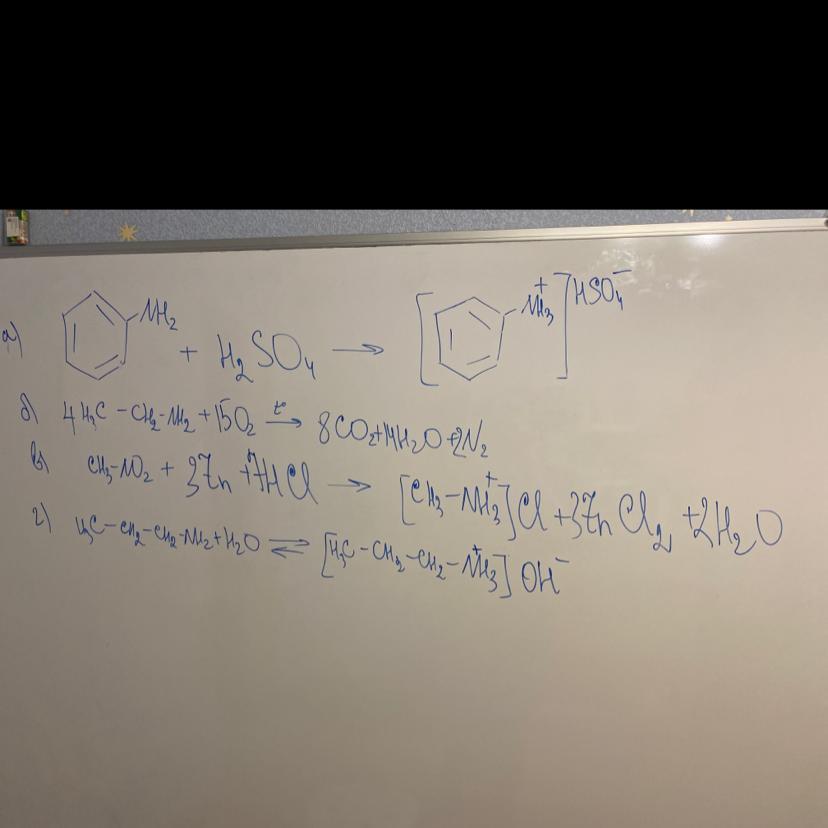 а) NH₂ + H₂SO₄ → [NH₃⁺]HSO₄⁻
б) 4H₃C-CH₂-NH₂ + 15O₂ →t° 8CO₂+14H₂O+2N₂
в) CH₃-NO₂ + 3Zn + 7HCl → [CH₃-NH₃⁺]Cl + 3ZnCl₂ + 2H₂O
г) H₃C-CH₂-CH₂-NH₂+H₂O ⇌ [H₃C-CH₂-CH₂-NH₃⁺] OH⁻